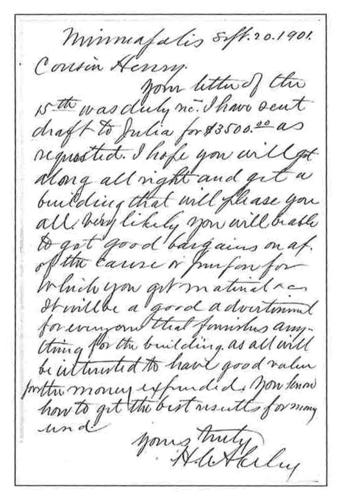 Minneapolis Sept. 20. 1901.
Cousin Henry.
Your letter of the
15th was duly rec. I have sent
draft to Julia for $3500.00 as
requested. I hope you will get
along all right and get a
building that will please you
all. Very likely you will be able
to get good bargains on a/c
of the cause or purpose for
which you get material
It will be a good advertisement
for everyone that furnishes any-
thing for the building as all will
be interested to have good value
for the money expended. You know
how to get the best results for money
used
Yours truly
H C Akeley